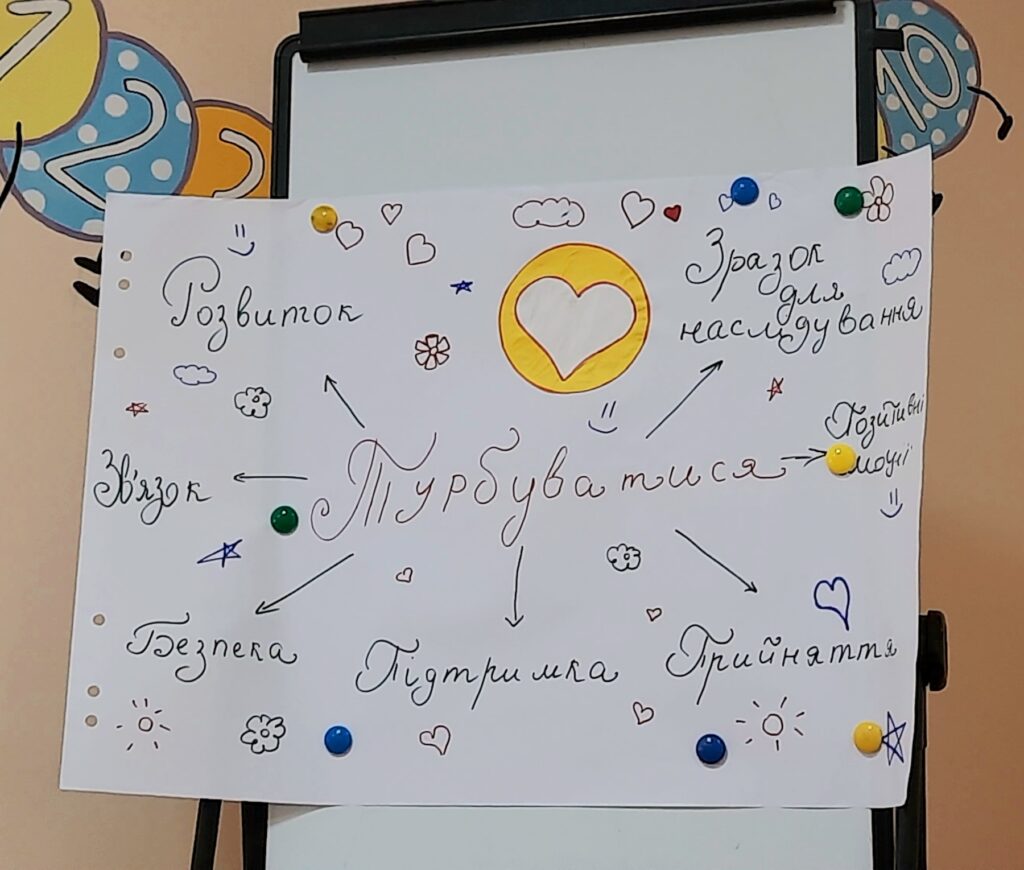 1
2
3
10
Розвиток
Зразок
для
наслідування
Позитивні
Турбуватися
Зв'язок
Безпека
Підтримка
Прийняття